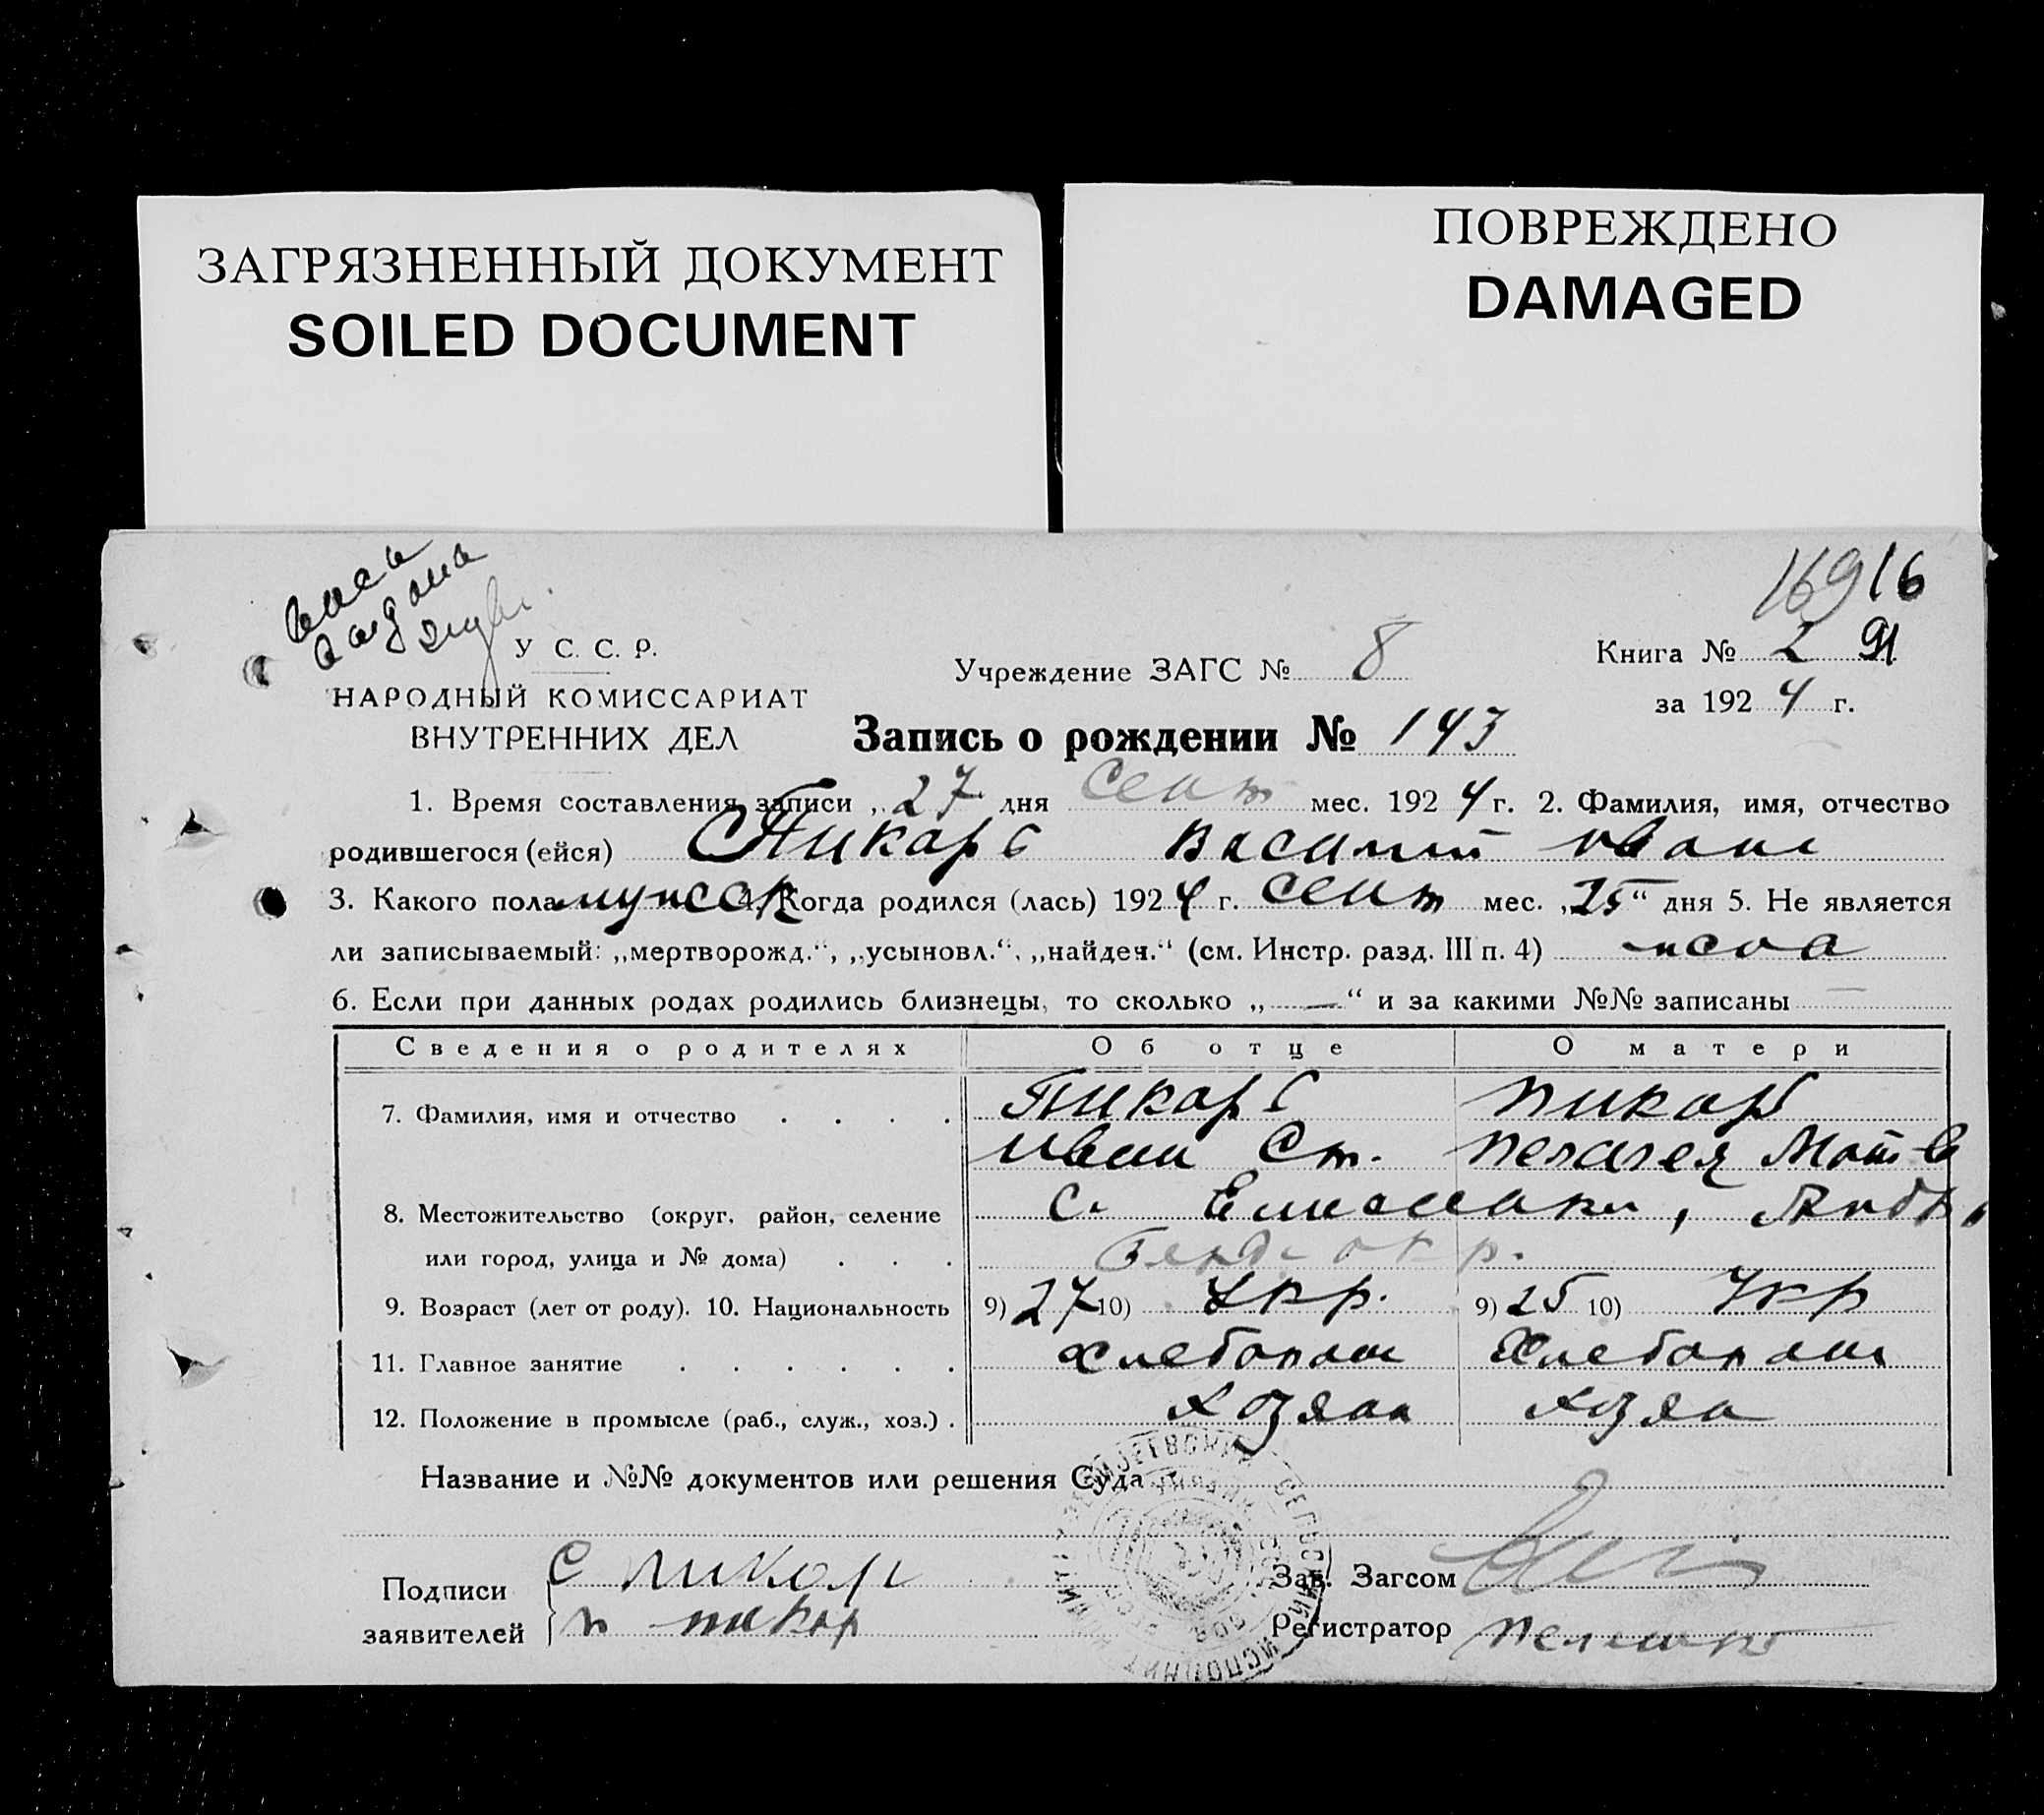 ЗАГРЯЗНЕННЫЙ ДОКУМЕНТ
SOILED DOCUMENT
ПОВРЕЖДЕНО
DAMAGED
16916
У С. С. Р.
НАРОДНЫЙ КОМИССАРИАТ
ВНУТРЕННИХ ДЕЛ
Учреждение ЗАГС № 8
Книга № 2 91
за 1924 г.
Запись о рождении № 143
1. Время составления записи „27 дня сент мес. 1924 г. 2. Фамилия, имя, отчество
родившегося (ейся) Пикарь Василий Иван
3. Какого пола мужск Когда родился (лась) 1924 г. сент мес. „25“ дня 5. Не является
ли записываемый: „мертворожд.“, „усыновл.“, „найден.“ (см. Инстр. разд. III п. 4)
6. Если при данных родах родились близнецы, то сколько „—“ и за какими №№ записаны —
Сведения о родителях Об отце О матери
7. Фамилия, имя и отчество Пикарь Пикарь
Иван Ст. Пелагея Мат-в
8. Местожительство (округ, район, селение с.
или город, улица и № дома) окр.
9. Возраст (лет от роду). 10. Национальность 9) 27 10) Укр. 9) 25 10) Укр
11. Главное занятие Хлебопаш Хлебопаш
12. Положение в промысле (раб., служ., хоз.) . хозяин хозяй
Название и №№ документов или решения Суда
Подписи С Пикар
заявителей П Пикар
Зав. Загсом
Регистратор